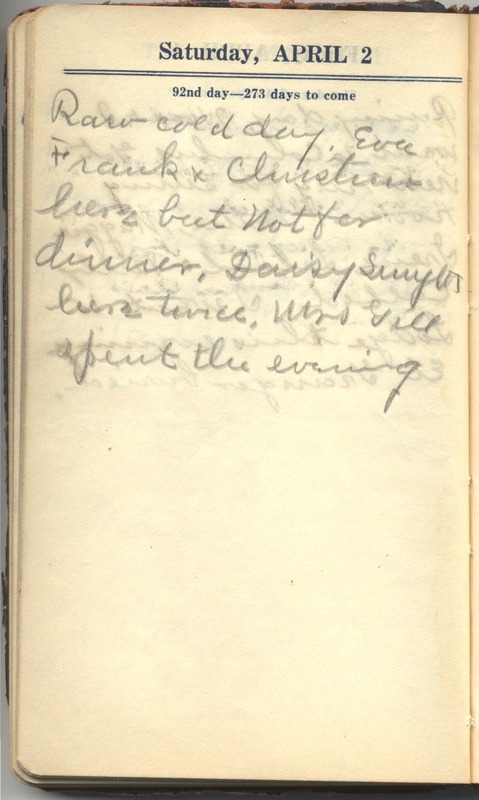 Saturday, APRIL 2
92nd day—273 days to come
Raw cold day. Eva
Frank x Christian
here but not for
dinner. Daisy Smyth
here twice. Mrs Gill
spent the evening